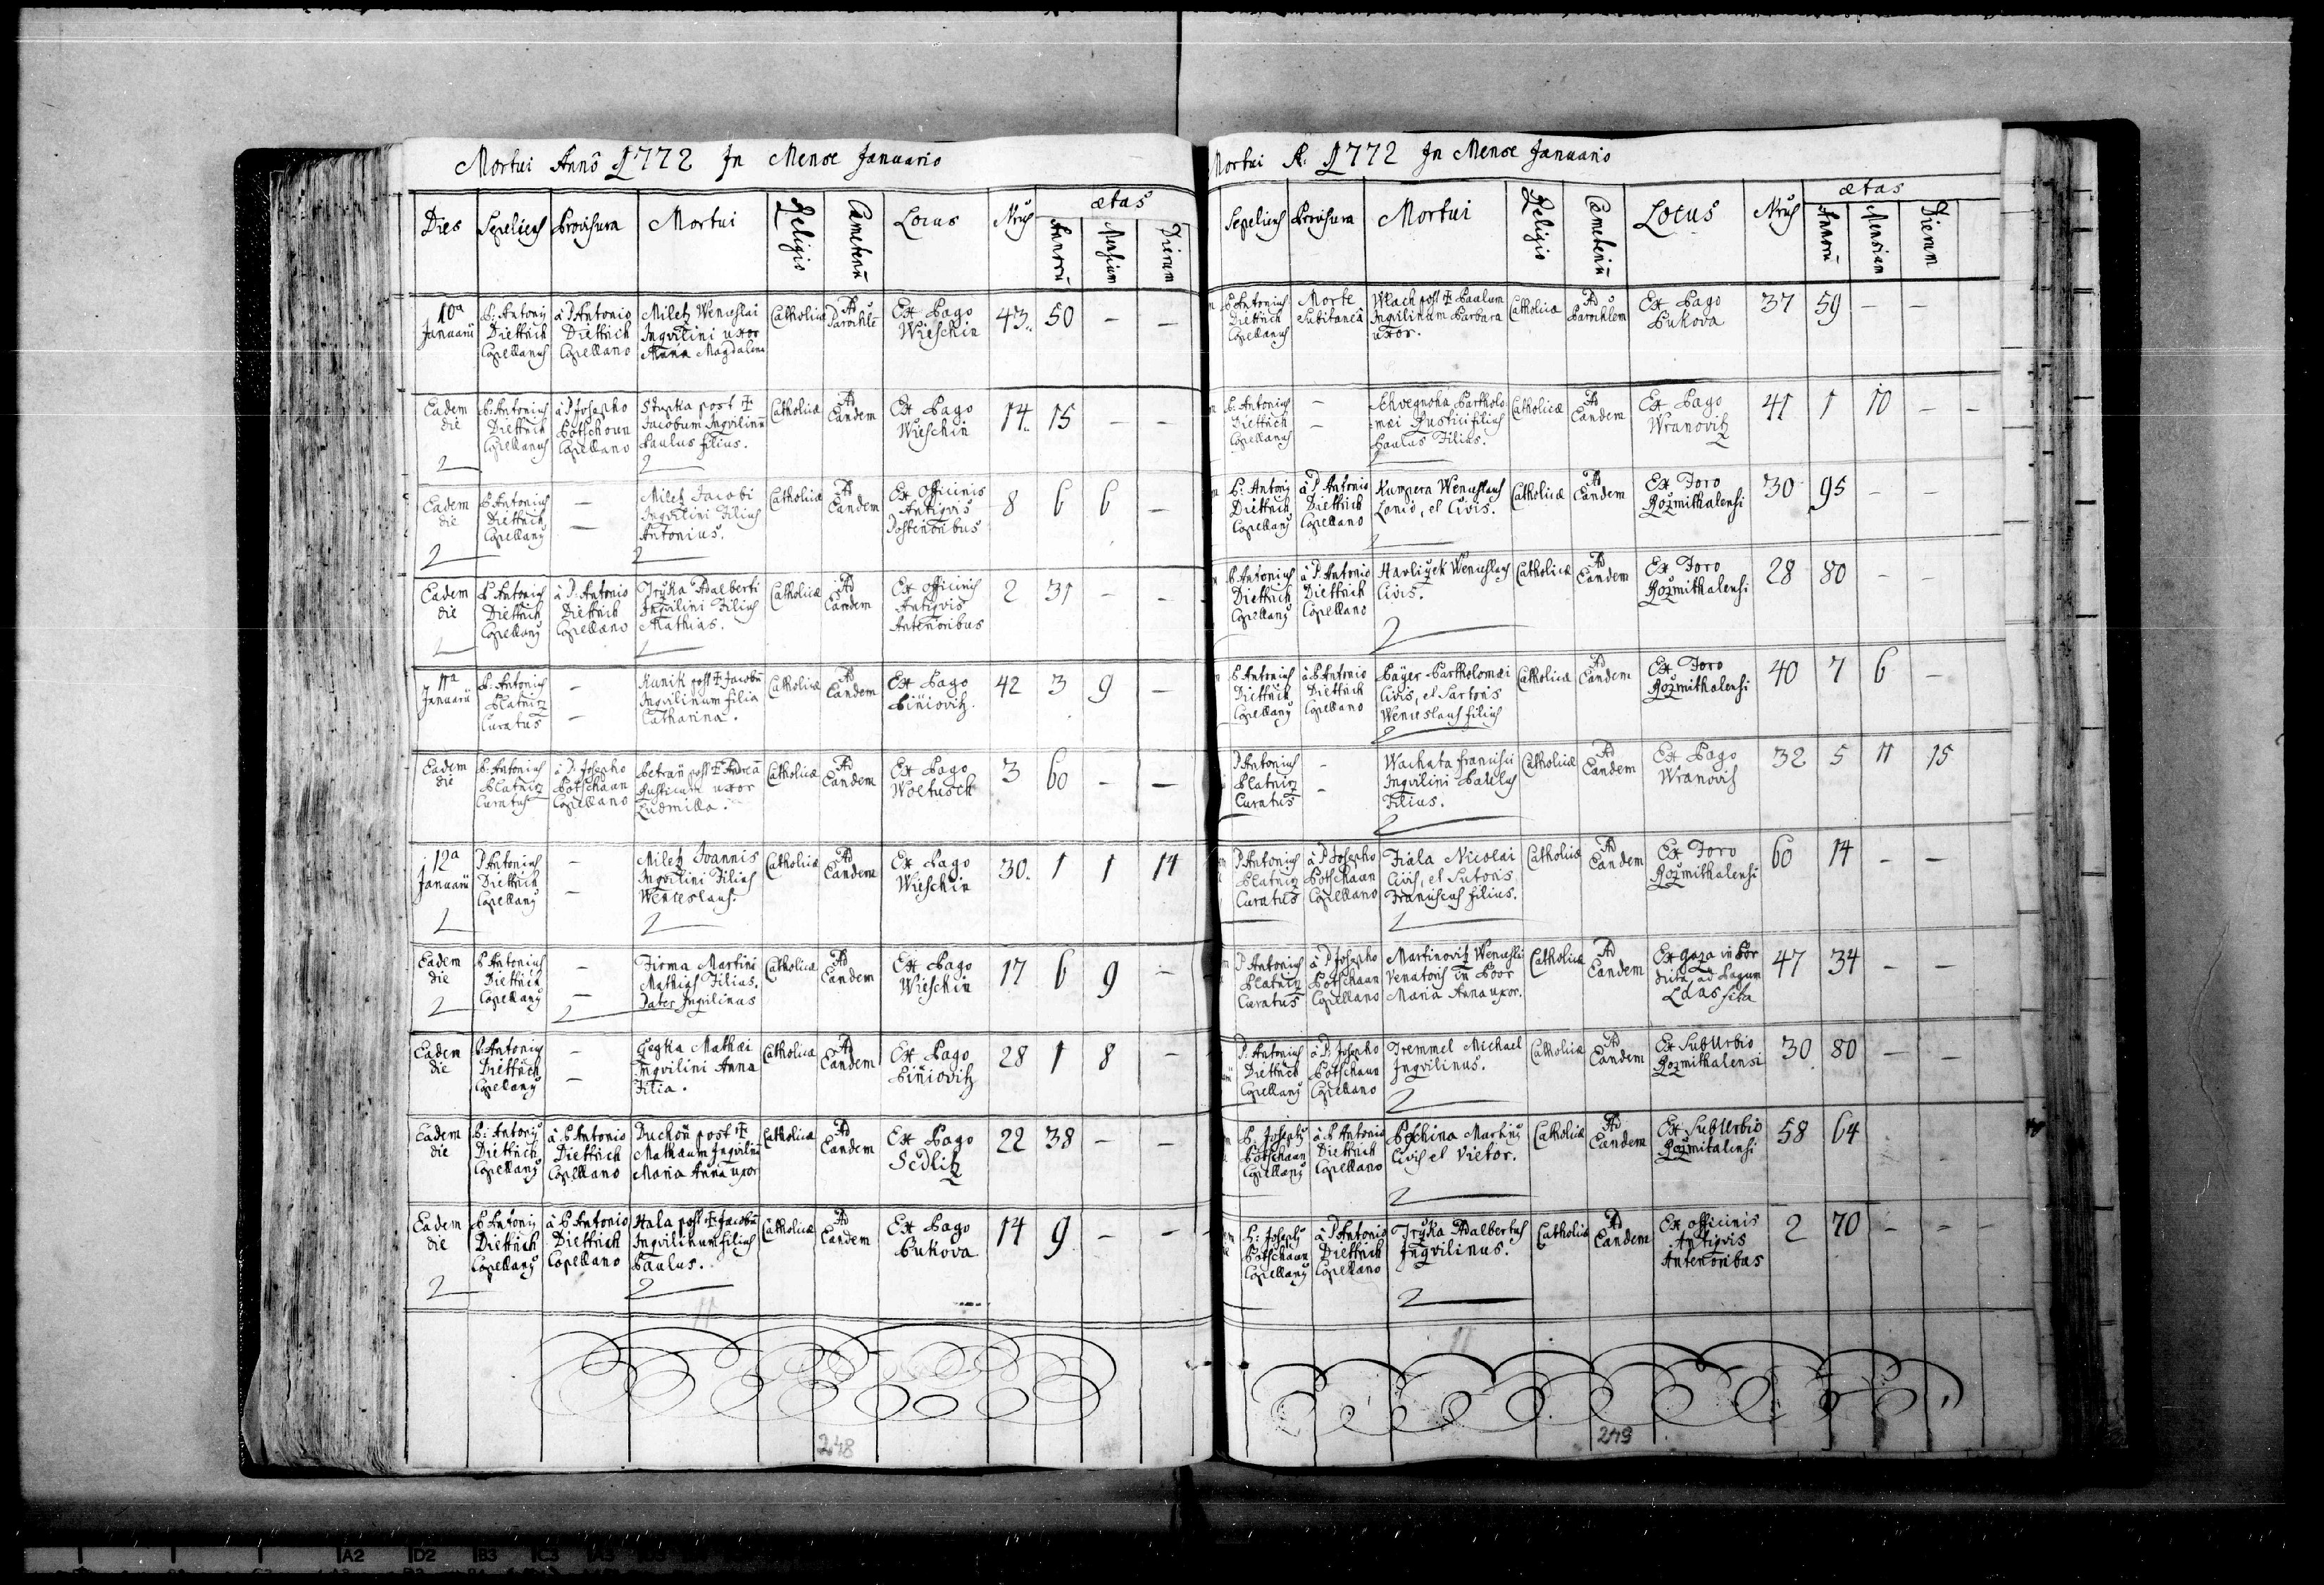 Mortui Annô 1772 In Mense Januario
Dies Sepeliens Provisura Mortui Religio Cæmeteriũ Locus Nrus ætas Annorũ Mensium Dierum
10ª Januarii
P: Antony Diettrich Capellanus
à P Antonio Diettrich Capellano
Miletz Wenceslai
Inqvilini uxor
Anna Magdalena
Catholica
Ad Parochlẽ
Ex Pago
Wieschin
43. 50 – –
Eadem die
P: Antonius Diettrich Capellanus
à P Josepho Botschaun Capellano
Stupka post ✝
Jacobum Inqvilinũ
Paulus filius.
Catholicæ
Ad Eandem
Ex Pago
Wieschin
14. 15 – –
Eadem die
P Antonius Diettrich Capellany
– –
Miletz Jacobi
Inqvilini Filius
Antonius.
Catholicæ
Ad Eandem
Ex Officinis
Antiqvis
Posterioribus
8 6 6 –
Eadem die
P Antonius Diettrich Capellany
à P: Antonio Diettrich Capellano
Adalberti
Inqvilini Filius
Mathias.
Catholicæ
Ad Eandem
Ex Officinis
Antiqvis
Anterioribus
2 31 – –
11ª Januarii
P: Antonius Platnitz Curatus
– –
Kunik post ✝ Jacobũ
Inqvilinum filia
Catharina.
Catholicæ
Ad Eandem
Ex Pago
Piniovitz.
42 3 9 –
Eadem die
P: Antonius Platnitz Curatus
à P: Josepho Botschaun Capellano
Petrañ post ✝ Andreã
Rusticum uxor
Ludmilla.
Catholicæ
Ad Eandem
Ex Pago
Woltusch
3 60 – –
12ª Januarii
P Antonius Diettrich Capellany
– –
Miletz Joannis
Inqvilini Filius
Wenceslaus.
Catholicæ
Ad Eandem
Ex Pago
Wieschin
30. 1 1 14
Eadem die
P Antonius Diettrich Capellany
– –
Firma Martini
Mathias Filius.
Pater Inqvilinus
Catholicæ
Ad Eandem
Ex Pago
Wieschin
17 6 9 –
Eadem die
P: Antonius Diettrich Capellany
– –
Mathæi
Inqvilini Anna
Filia.
Catholica
Ad Eandem
Ex Pago
Piniovitz
28 1 8 –
Eadem die
P: Antony Diettrich Capellany
à P Antonio Diettrich Capellano
Duchoñ post ✝
Mathæum Inqvilinũ
Maria Anna uxor
Catholica
Ad Eandem
Ex Pago
Sedlitz
22 38 – –
Eadem die
P Antony Diettrich Capellany
à P Antonio Diettrich Capellano
Hala post ✝ Jacobũ
Inqvilinum filius
Paulus.
Catholicæ
Ad Eandem
Ex Pago
Bukova
14 9 – –
248
Mortui A: 1772 In Mense Januario
Sepeliens Provisura Mortui Religio Cæmeteriũ Locus Nrus ætas Annorũ Mensium Dierum
P Antonius Diettrich Capellanus
Morte Subitaneâ
Wlach post ✝ Paulum
Inqvilinum Barbara
uxor.
Catholica
Ad Parochlem
Ex Pago
Bukova
37 59 – –
P. Antonius Diettrich Capellanus
– –
Bartholo-
mæi Rustici filius
Paulus Filius.
Catholicæ
Ad Eandem
Ex Pago
Wranovitz
41 1 10 – –
P: Antony Diettrich Capellany
à P Antonio Diettrich Capellano
Kumpera Wenceslaus
Lanio, et Civis.
Catholicæ
Ad Eandem
Ex Foro
Rozmithalensi
30 95 – –
P Antonius Diettrich Capellany
à P. Antonio Diettrich Capellano
Havliček Wenceslaus
Civis.
Catholicæ
Ad Eandem
Ex Foro
Rozmithalensi
28 80 – –
P Antonius Diettrich Capellany
à P Antonio Diettrich Capellano
Bayer Bartholomæi
Civis, et Sartoris
Wenceslaus filius
Catholica
Ad Eandem
Ex Foro
Rozmithalensi
40 7 6 –
P Antonius Platnitz Curatus
– –
Wachata Francisci
Inqvilini Paulus
Filius.
Catholicæ
Ad Eandem
Ex Pago
Wranovitz
32 5 11 15
P Antonius Platnitz Curatus
à P Josepho Botschaun Capellano
Fiala Nicolai
Civis, et Sutoris
Franciscus filius.
Catholicæ
Ad Eandem
Ex Foro
Rozmithalensi
60 14 – –
P Antonius Platnitz Curatus
à P Josepho Botschaun Capellano
Martinovitz Wenceslai
Venatoris in Boor
Maria Anna uxor.
Catholica
Ad Eandem
Ex Gaza in Bor
dicta, ad Pagum
Laas sita
47 34 – –
P: Antonius Diettrich Capellany
à P: Josepho Botschaun Capellano
Tremmel Michael
Inqvilinus.
Catholicæ
Ad Eandem
Ex SubUrbio
Rozmithalensi
30 80 – –
P: Josephy Botschaun Capellany
à P Antonio Diettrich Capellano
Pechina Martinus
Civis et Vietor.
Catholicæ
Ad Eandem
Ex SubUrbio
Rozmitalensi
58 64
P: Josephy Botschaun Capellany
à P Antonio Diettrich Capellano
Adalbertus
Inqvilinus.
Catholica
Ad Eandem
Ex officinis
Antiqvis
Anterioribus
2 70 – – –
249
A2 D2 B3 C3 A5